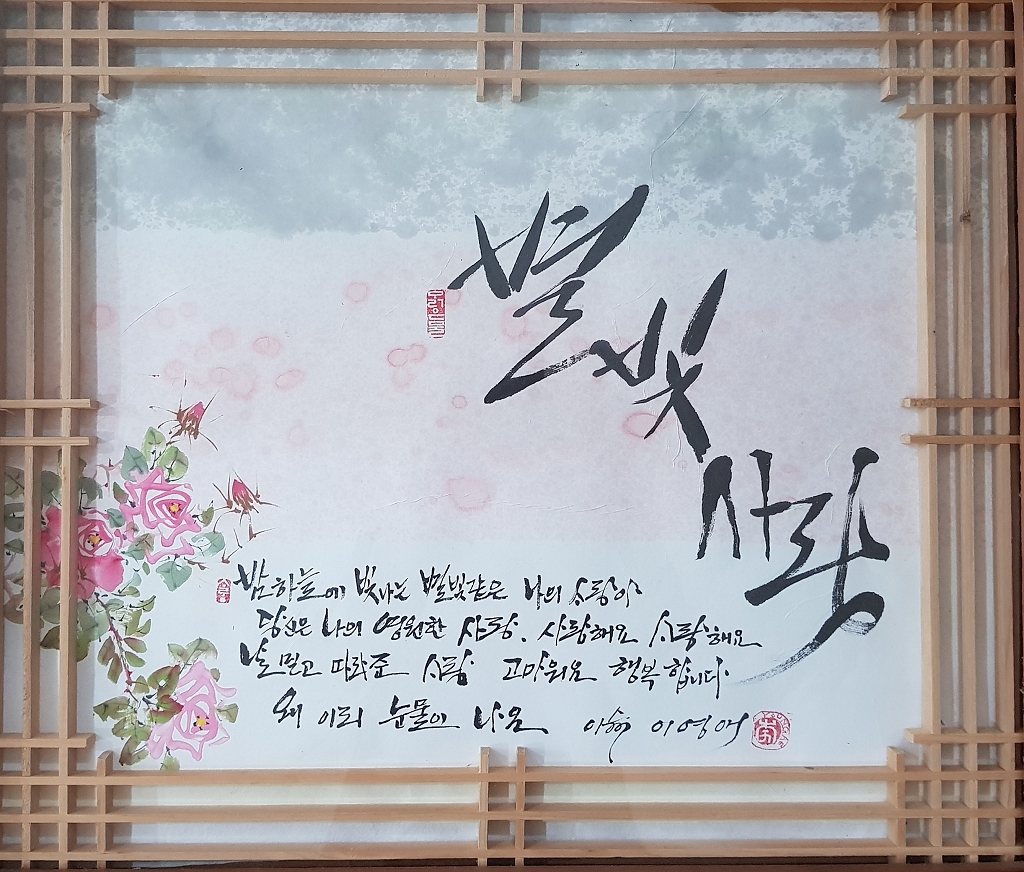 별빛
사랑
밤하늘에 빛나는 별빛같은 나의 사랑아
당신은 나의 영원한 사랑. 사랑해요 사랑해요
날 믿고 따라준 사람 고마워요 행복합니다.
왜 이리 눈물이 나요
이영애